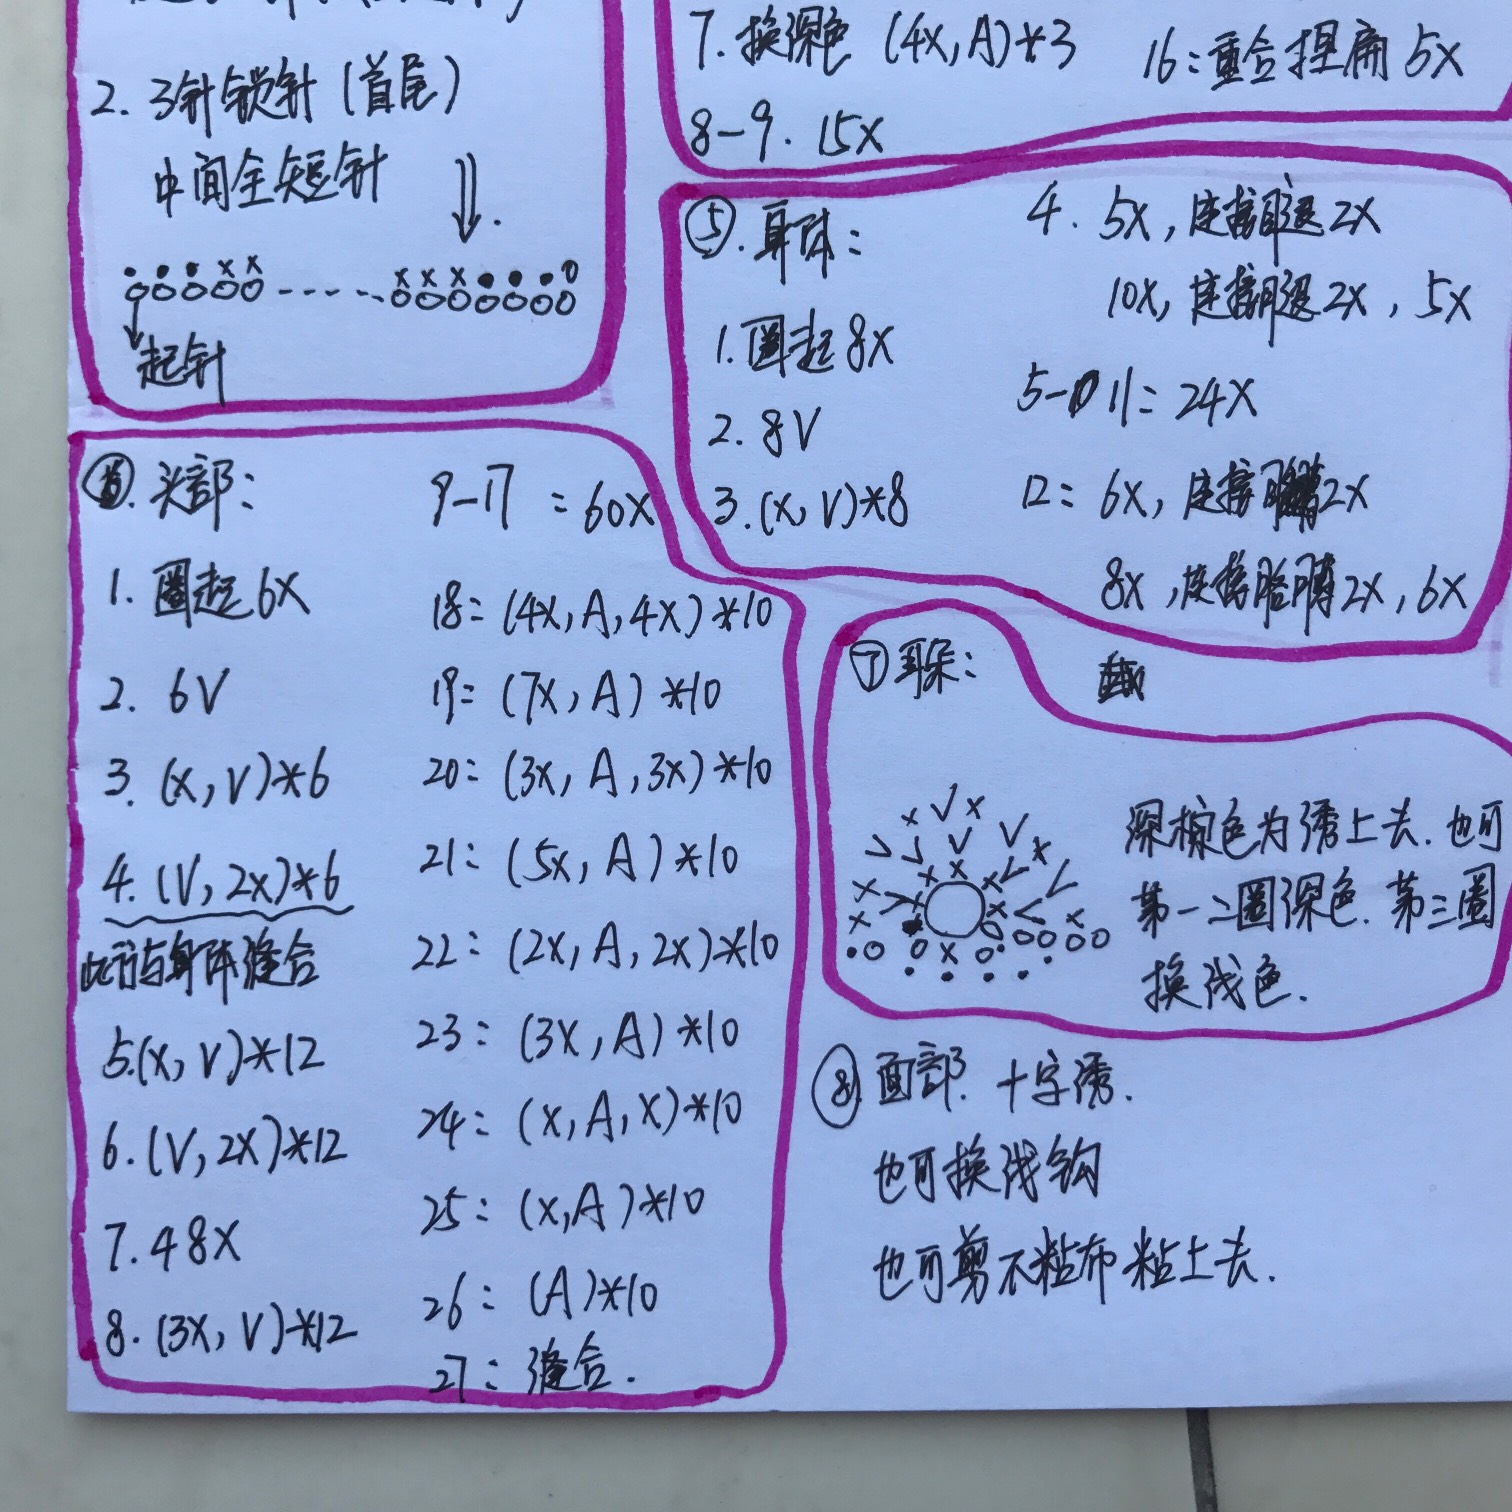 2. 3针锁针(首尾)
中间全短针
起针
7. 换深色 (4X, A)*3
8-9. 15X
16: 重合捏扁 5X
⑤. 身体:
1. 圈起 8X
2. 8V
3. (X, V)*8
4. 5X, 连接腿 2X
10X, 连接腿 2X, 5X
5-11: 24X
12: 6X, 连接胳膊 2X
8X, 连接胳膊 2X, 6X
⑥. 头部:
1. 圈起 6X
2. 6V
3. (X, V)*6
4. (V, 2X)*6
此行与身体缝合
5. (X, V)*12
6. (V, 2X)*12
7. 48X
8. (3X, V)*12
9-17: 60X
18: (4X, A, 4X)*10
19: (7X, A)*10
20: (3X, A, 3X)*10
21: (5X, A)*10
22: (2X, A, 2X)*10
23: (3X, A)*10
24: (X, A, X)*10
25: (X, A)*10
26: (A)*10
27: 缝合.
⑦ 耳朵:
深棕色为绣上去. 也可
第一二圈深色. 第三圈
换浅色.
⑧ 面部. 十字绣.
也可换线钩
也可剪不粘布粘上去.